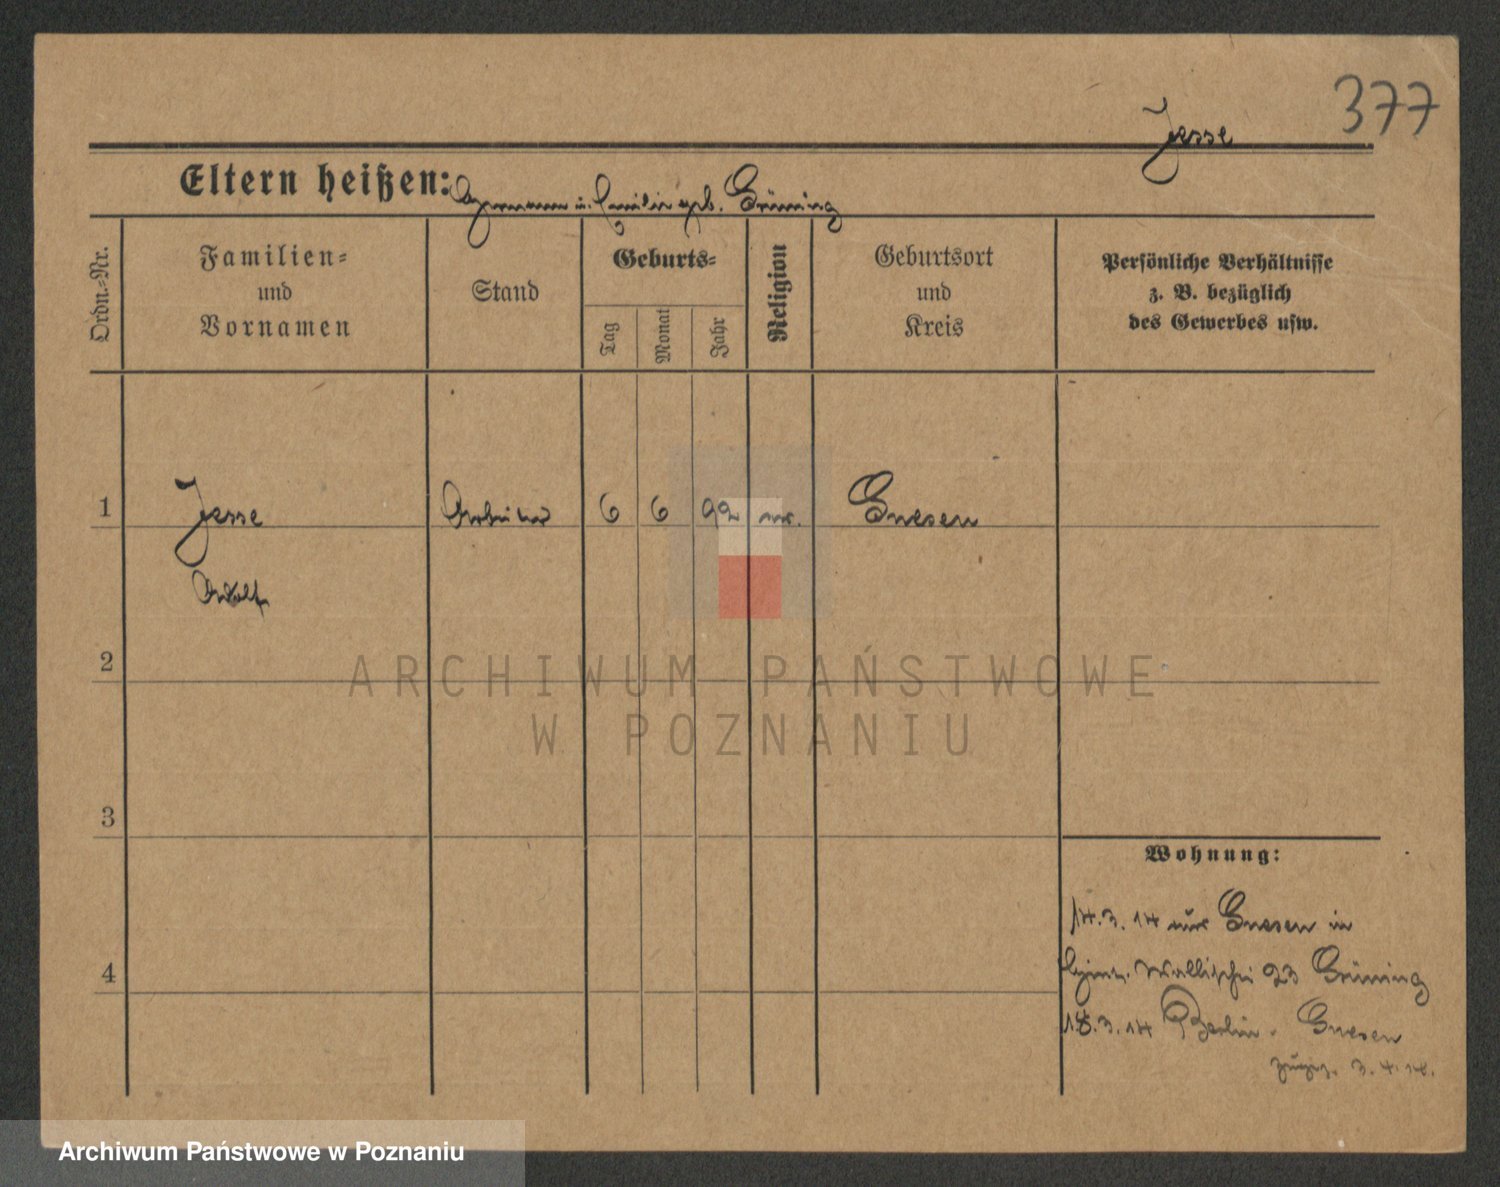 377
Jesse
Eltern heißen: Hermann u. Emilie geb. Grüning
Ordn.-Nr.
Familien-
und
Vornamen
Stand
Geburts-
Tag
Monat
Jahr
Religion
Geburtsort
und
Kreis
Persönliche Verhältnisse
z. B. bezüglich
des Gewerbes usw.
1
Jesse
Arbeiter
6
6
92
ev.
Gnesen
Adolf
2
ARCHIWUM PAŃSTWOWE
W POZNANIU
3
Wohnung:
14.3.14 aus Gnesen in
Wallischei 23 Grüning
4
18.3.14 Berlin. Gnesen
3.4.14.
Archiwum Państwowe w Poznaniu